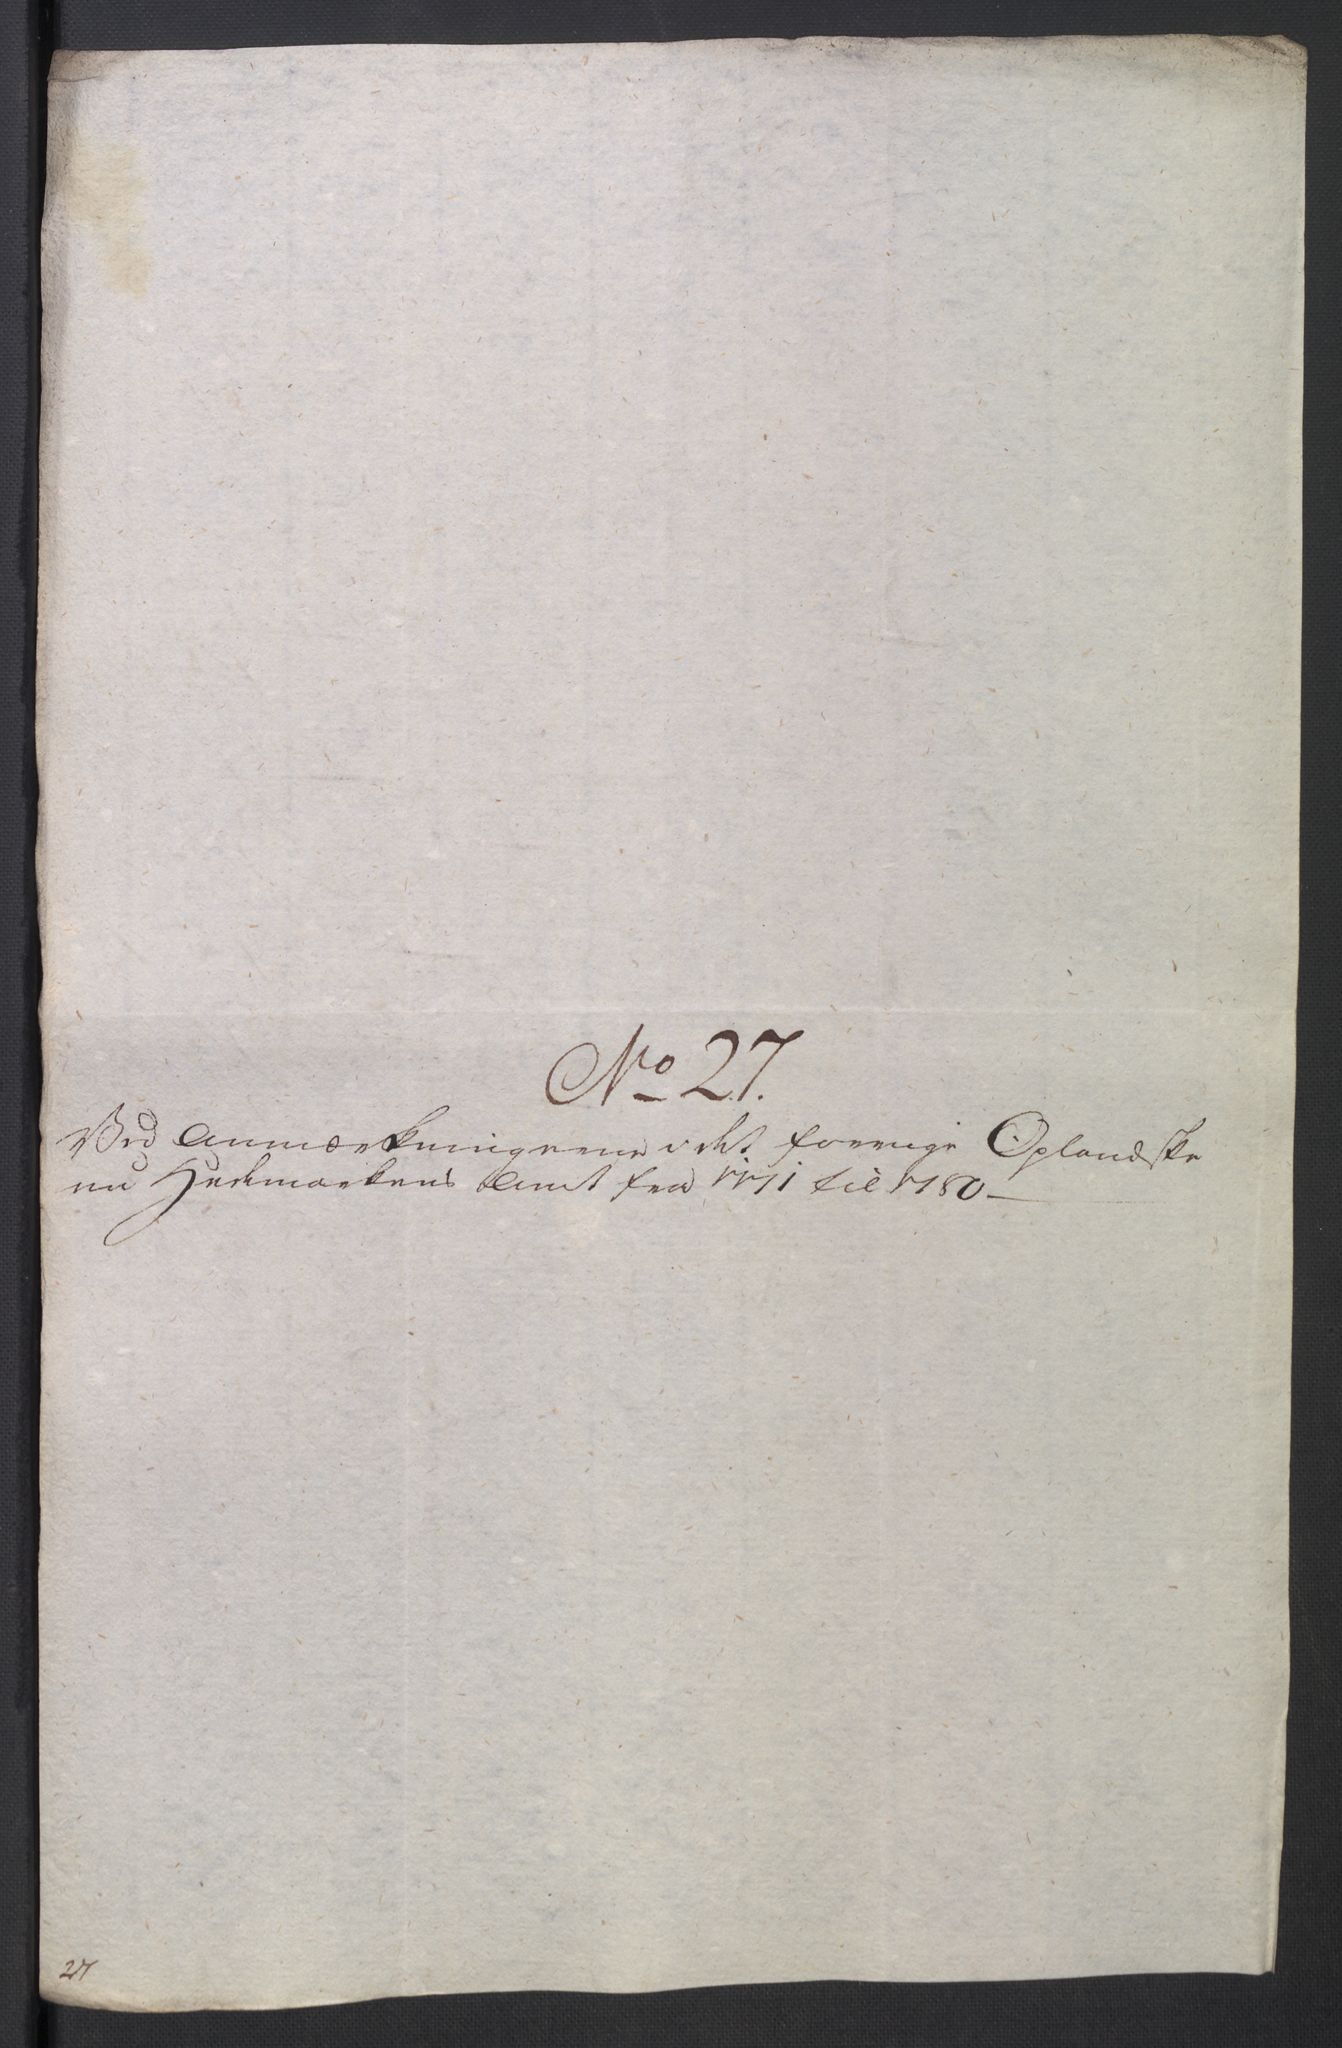 No 27.
Ved Anmærkningerne i det forrige Oplandske
nu Hedemarkens Amt fra 1771 til 1780
27